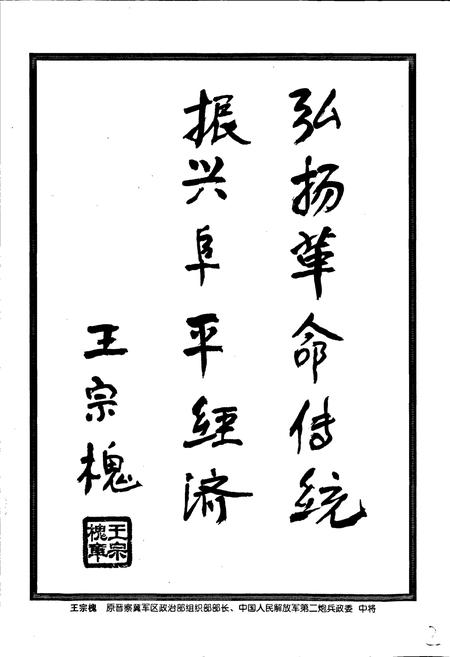 弘扬革命传统
振兴阜平経济
王宗槐
王宗
槐章
王宗槐 原晋察冀军区政治部组织部部长、中国人民解放军第二炮兵政委 中将